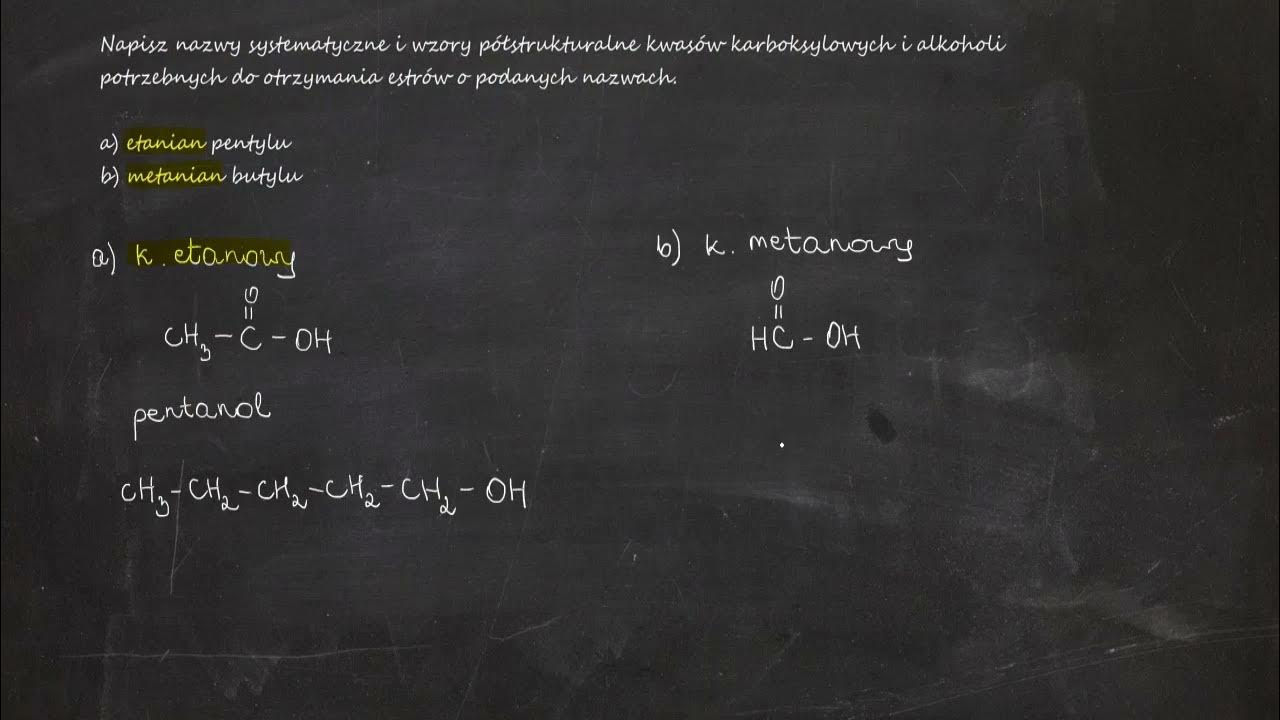 Napisz nazwy systematyczne i wzory półstrukturalne kwasów karboksylowych i alkoholi
potrzebnych do otrzymania estrów o podanych nazwach.
a) etanian pentylu
b) metanian butylu
a) k. etanowy
O
||
CH₃ – C – OH
pentanol
CH₃ – CH₂ – CH₂ – CH₂ – CH₂ – OH
b) k. metanowy
O
||
HC – OH